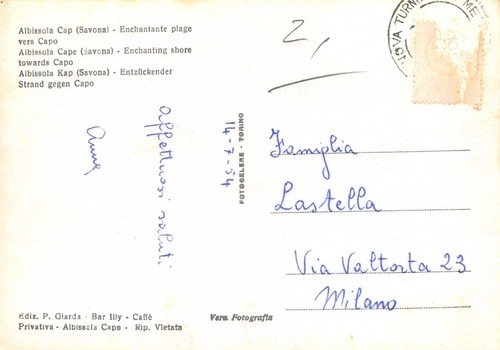 Albissola Cap (Savona) - Enchantante plage
vers Capo
Albissola Cape (Savona) - Enchanting shore
towards Capo
Albissola Kap (Savona) - Entzückender
Strand gegen Capo
2,
affettuosi saluti
Anna
14-7-54
FOTOCELERE - TORINO
Famiglia
Lastella
Via Valtorta 23
Milano
Ediz. P. Giarda - Bar Illy - Caffè
Privativa - Albissola Capo - Rip. Vietata
Vera Fotografia